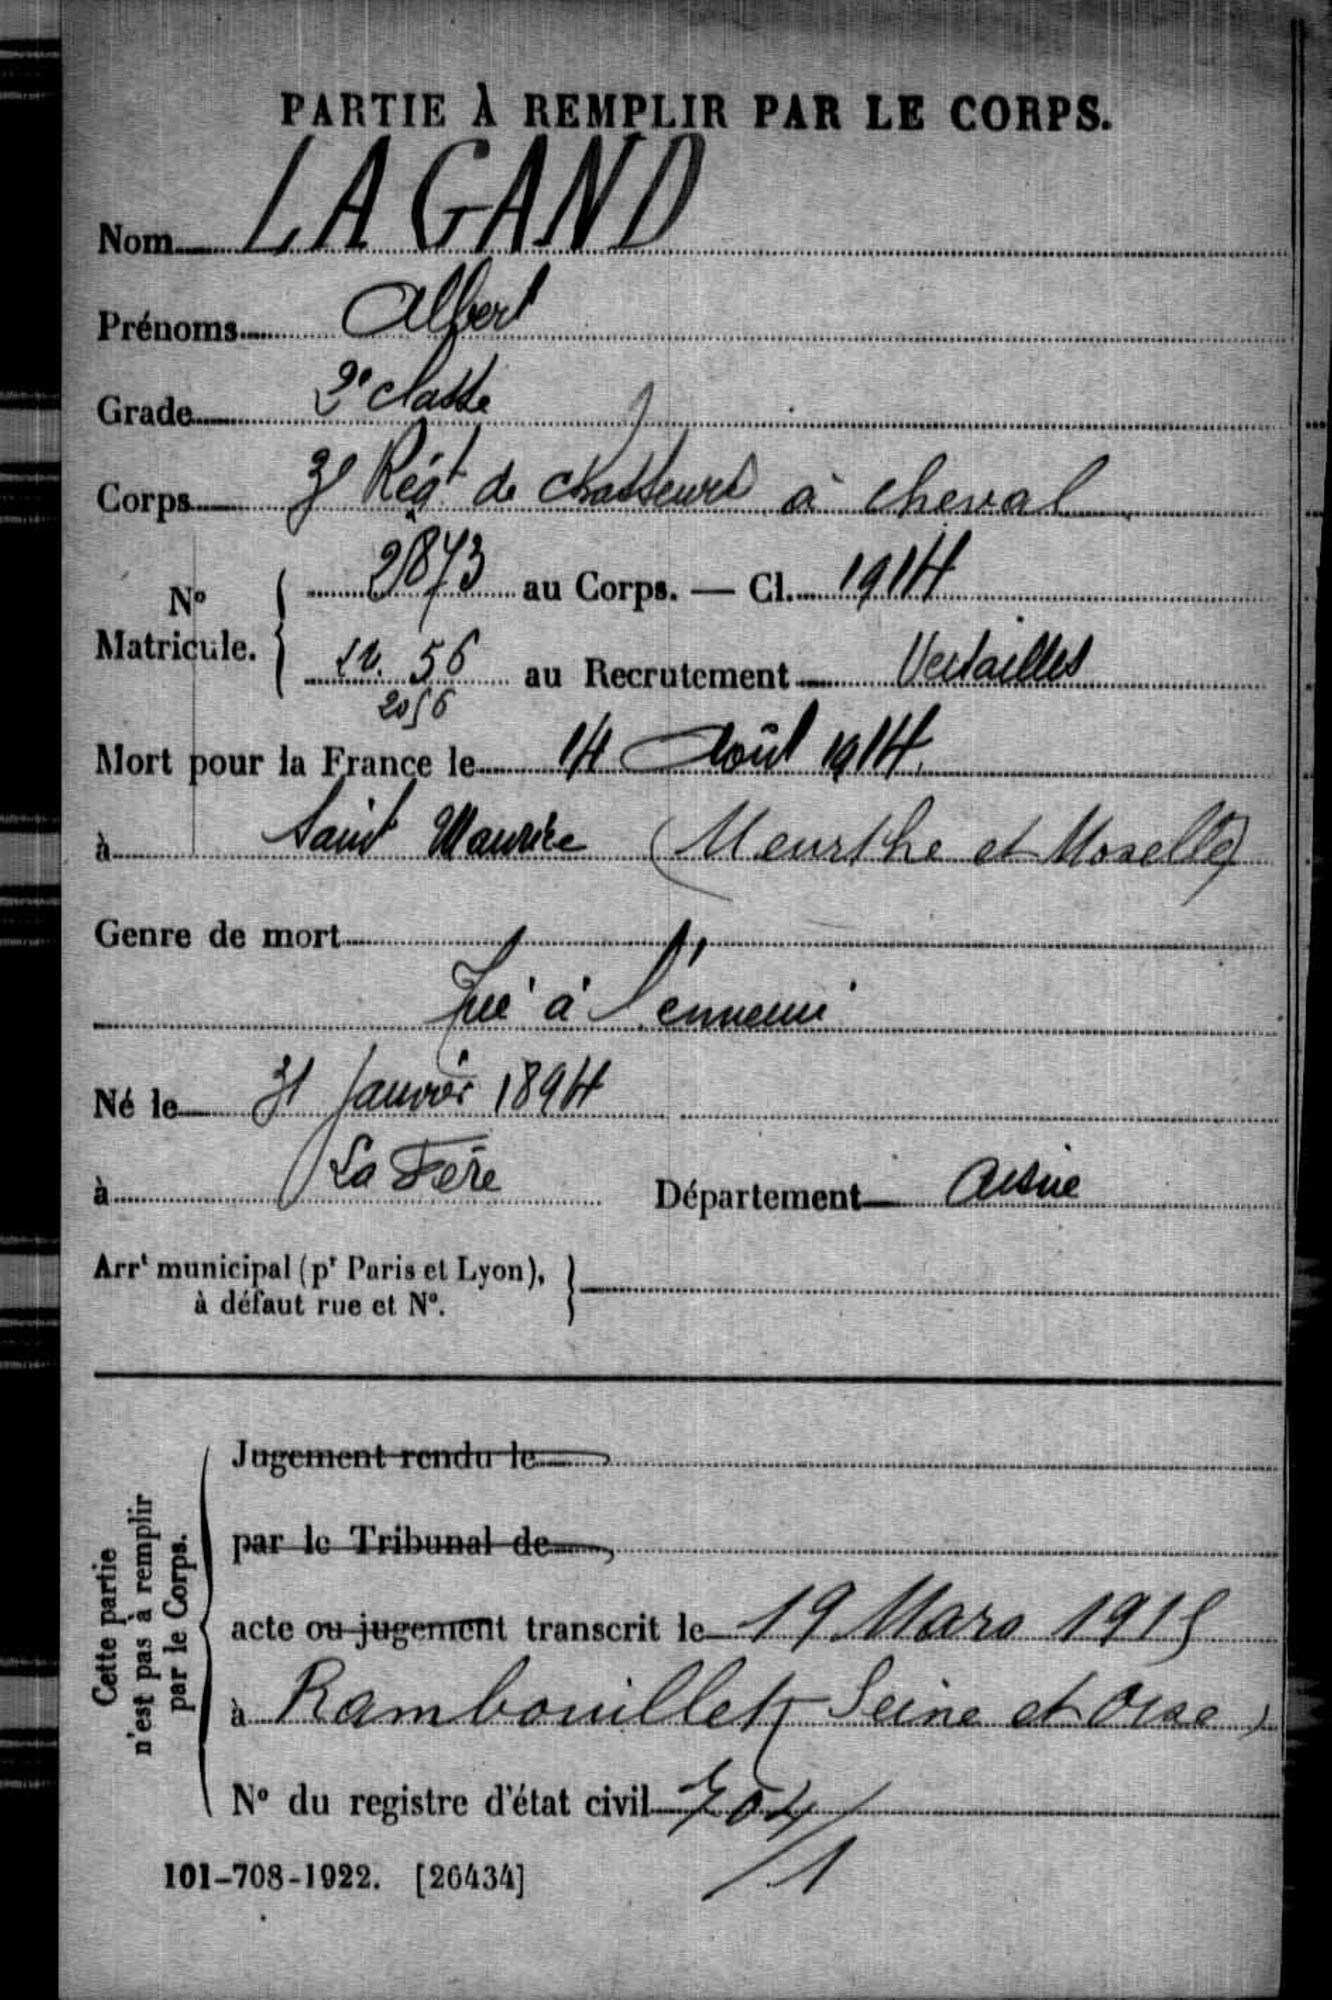 PARTIE À REMPLIR PAR LE CORPS.
Nom LAGAND
Prénoms Albert
Grade 2e classe
Corps 3e Régt de chasseurs à cheval
No Matricule. 2873 au Corps. — Cl. 1914
56 au Recrutement Versailles
2056
Mort pour la France le 14 Août 1914
à Saint Maurice (Meurthe et Moselle)
Genre de mort
Tué à l'ennemi
Né le 31 Janvier 1894
à La Fère Département Aisne
Arrt municipal (pr Paris et Lyon),
à défaut rue et No.
Cette partie
n'est pas à remplir
par le Corps.
Jugement rendu le
par le Tribunal de
acte ou jugement transcrit le 19 Mars 1915
à Rambouillet (Seine et Oise)
No du registre d'état civil 704/1
101-708-1922. [26434]